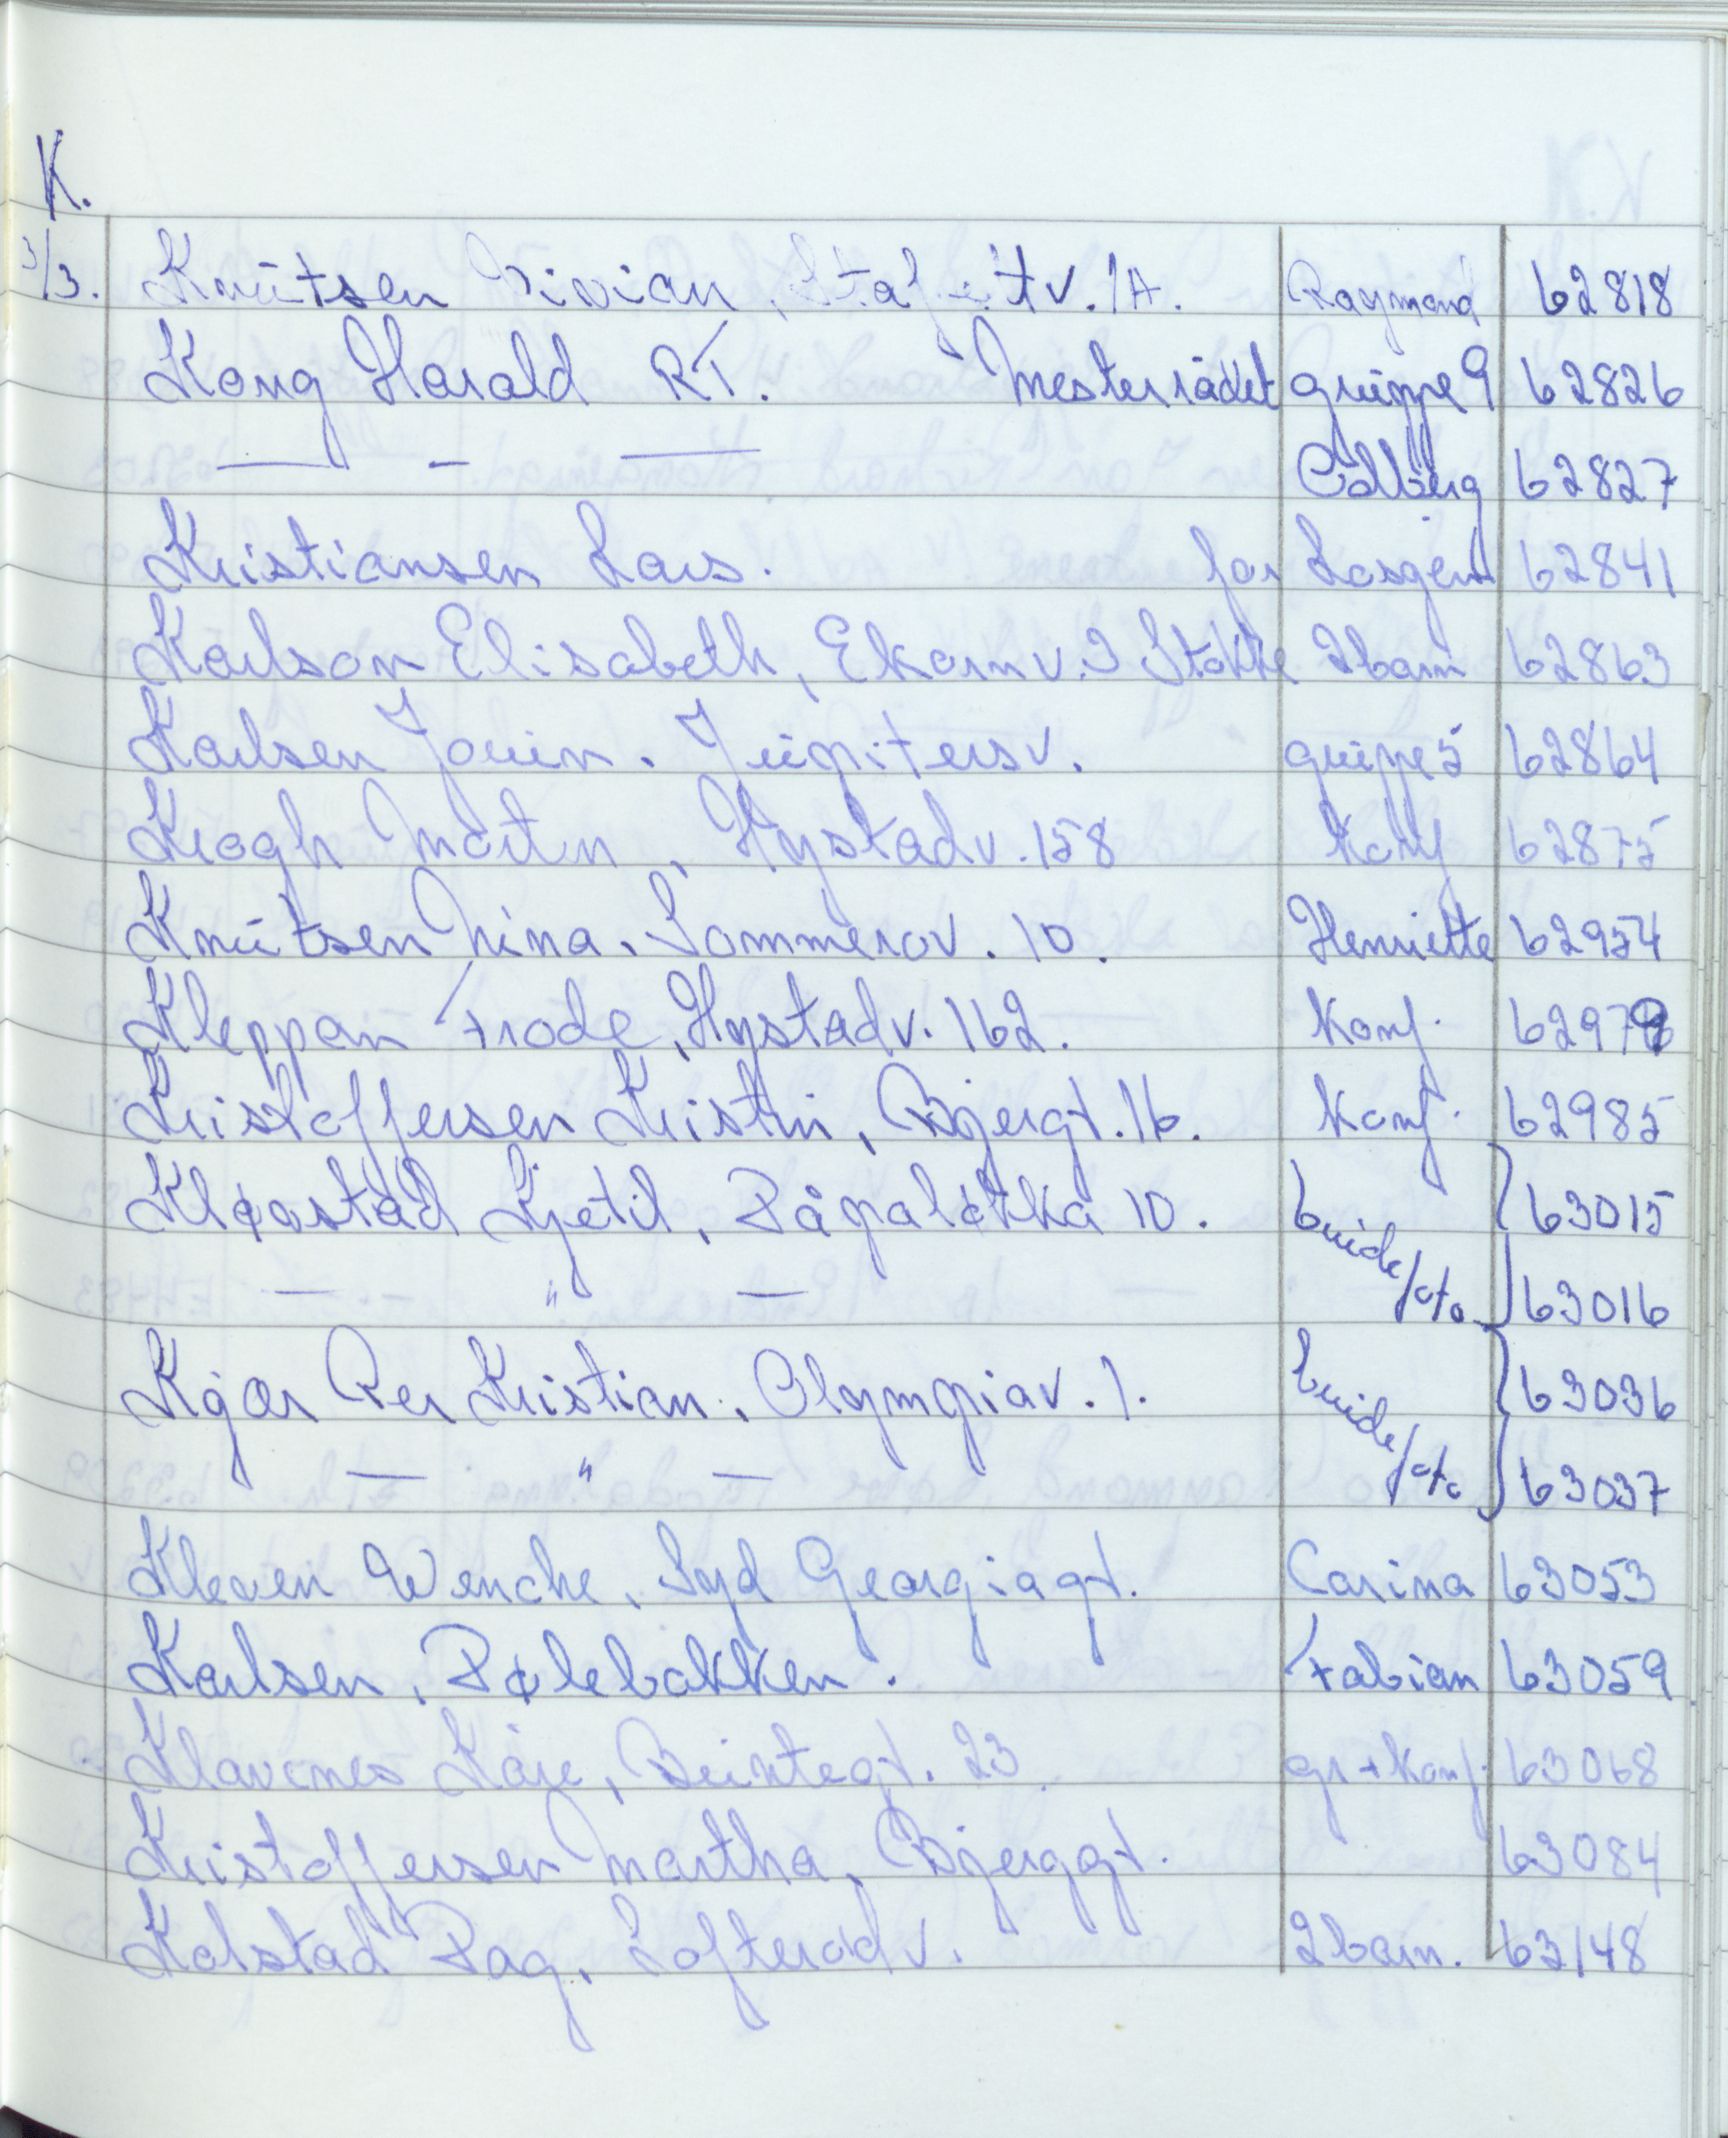 K.
3/3. Knutsen Vivian, Stafettv. 1A. Raymond 62818
Kong Harald RT. Mesterrådet gruppe 9 62826
— - — Colberg 62827
Kristiansen Lars. far Lasgent 62841
Karlson Elisabeth, Ekornv. 3 Stokke 2barn 62863
Karlsen Jouin. Jupitersv. gruppe 5 62864
Krogh Morten, Hystadv. 158 Konf 62875
Knutsen Nina. Sommerov. 10. Henriette 62954
Kleppan Frode, Hystadv. 162. Konf. 62979
Kristoffersen Kristin, Bjergt. 16. Konf. 62985
Kløvstad Kjetil, Dågaløkka 10. brude/oto 63015
— " — 63016
Kjær Per Kristian, Olympiav. 1. brude/oto 63036
— " — 63037
Kleven Wenche, Syd Georgiagt. Carina 63053
Karlsen, Dølebakken. Fabian 63059
Klavenes Kåre, Bruntegt. 23 gr + Konf. 63068
Kristoffersen Martha, Bjerggt. 63084
Kolstad Dag, Lofterødv. 2barn. 63148